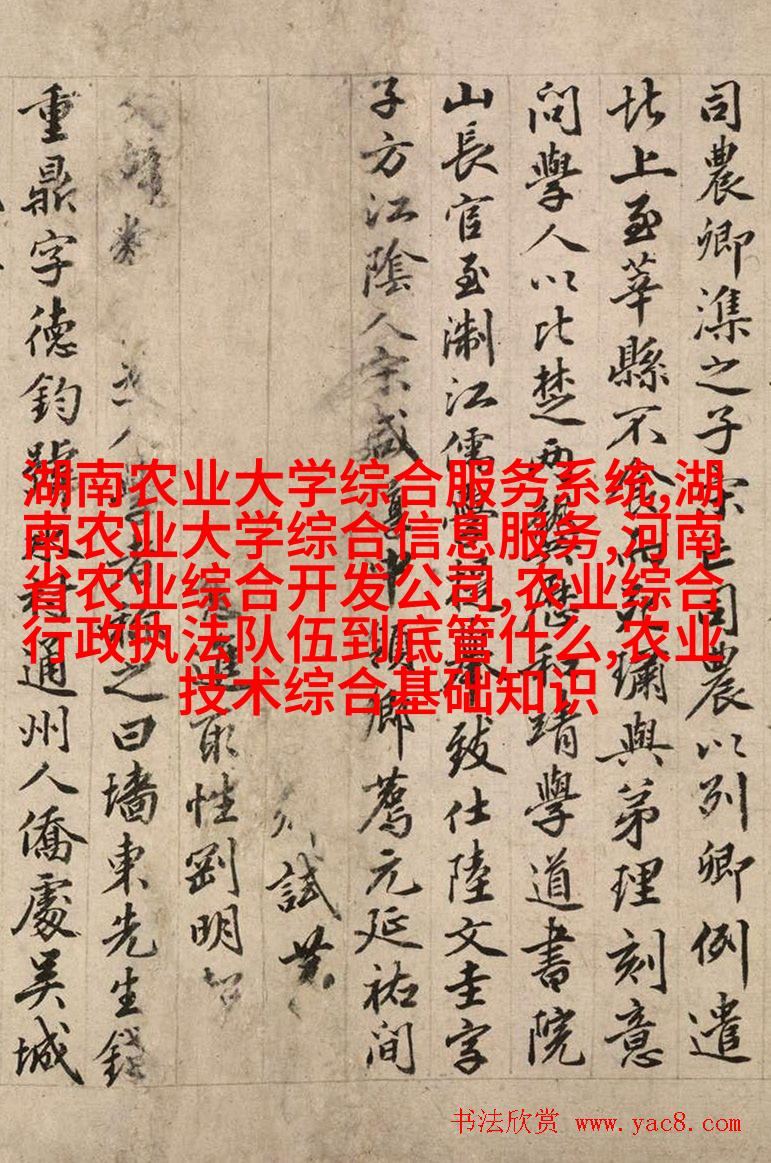 司農卿潗之子宋亡司農以列卿例遣
北上至莘縣不食與弟理刻意
問學人以比楚兩龔應和靖學道書院
山長官至淛江儒學提舉致仕陸文圭字
子方江陰人宋咸淳中領鄉薦元延祐間
試
進取性剛明
人學者稱之曰墻東先生錢
重鼎字德鈞號水村通州人僑處吳城
湖南农业大学综合服务系统,湖
南农业大学综合信息服务,河南
省农业综合开发公司,农业综合
行政执法队伍到底管什么,农业
技术综合基础知识
书法欣赏 www.yac8.com